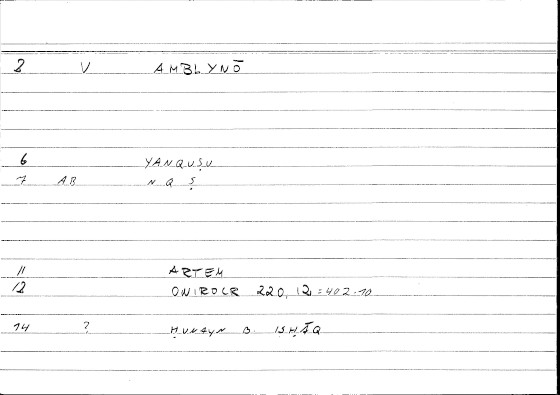 2 V AMBLYNŌ
6 YANQUṢU
7 AB NQṢ
11 ARTEM
12 ONIROCR 220, 12 = 402.10
14 ? ḤUNAYN B. ISḤĀQ